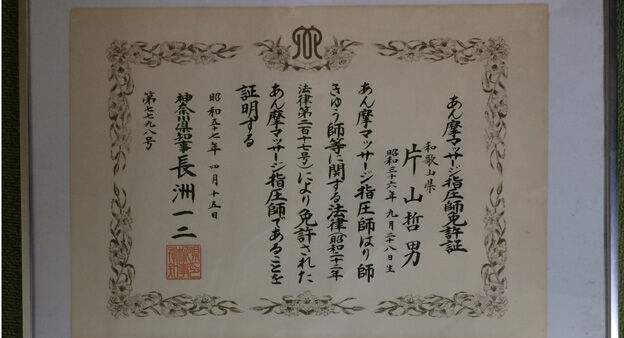 あん摩マッサージ指圧師免許証
和歌山県
片山哲男
昭和三十六年九月二十八日生
あん摩マッサージ指圧師はり師
きゆう師等に関する法律(昭和二十二年
法律第二百十七号)により免許された
あん摩マッサージ指圧師であることを
証明する
昭和五十七年四月十五日
神奈川県知事長洲一二
第七七九八号